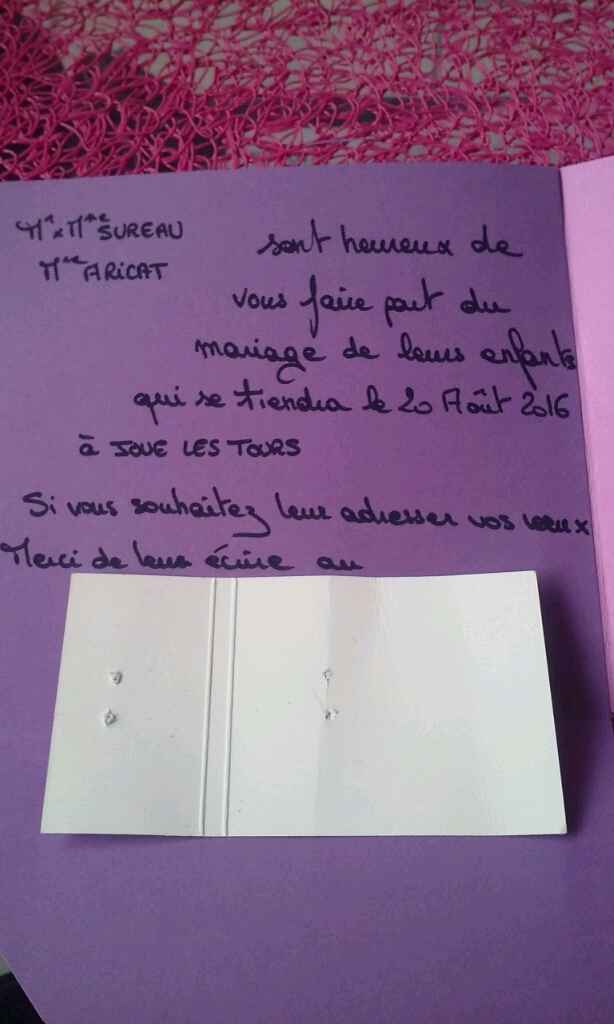 Mr & Mme SUREAU
Mme ARICAT
sont heureux de
vous faire part du
mariage de leurs enfants
qui se tiendra le 20 Août 2016
à JOUE LES TOURS
Si vous souhaitez leur adresser vos voeux
Merci de leur écrire au